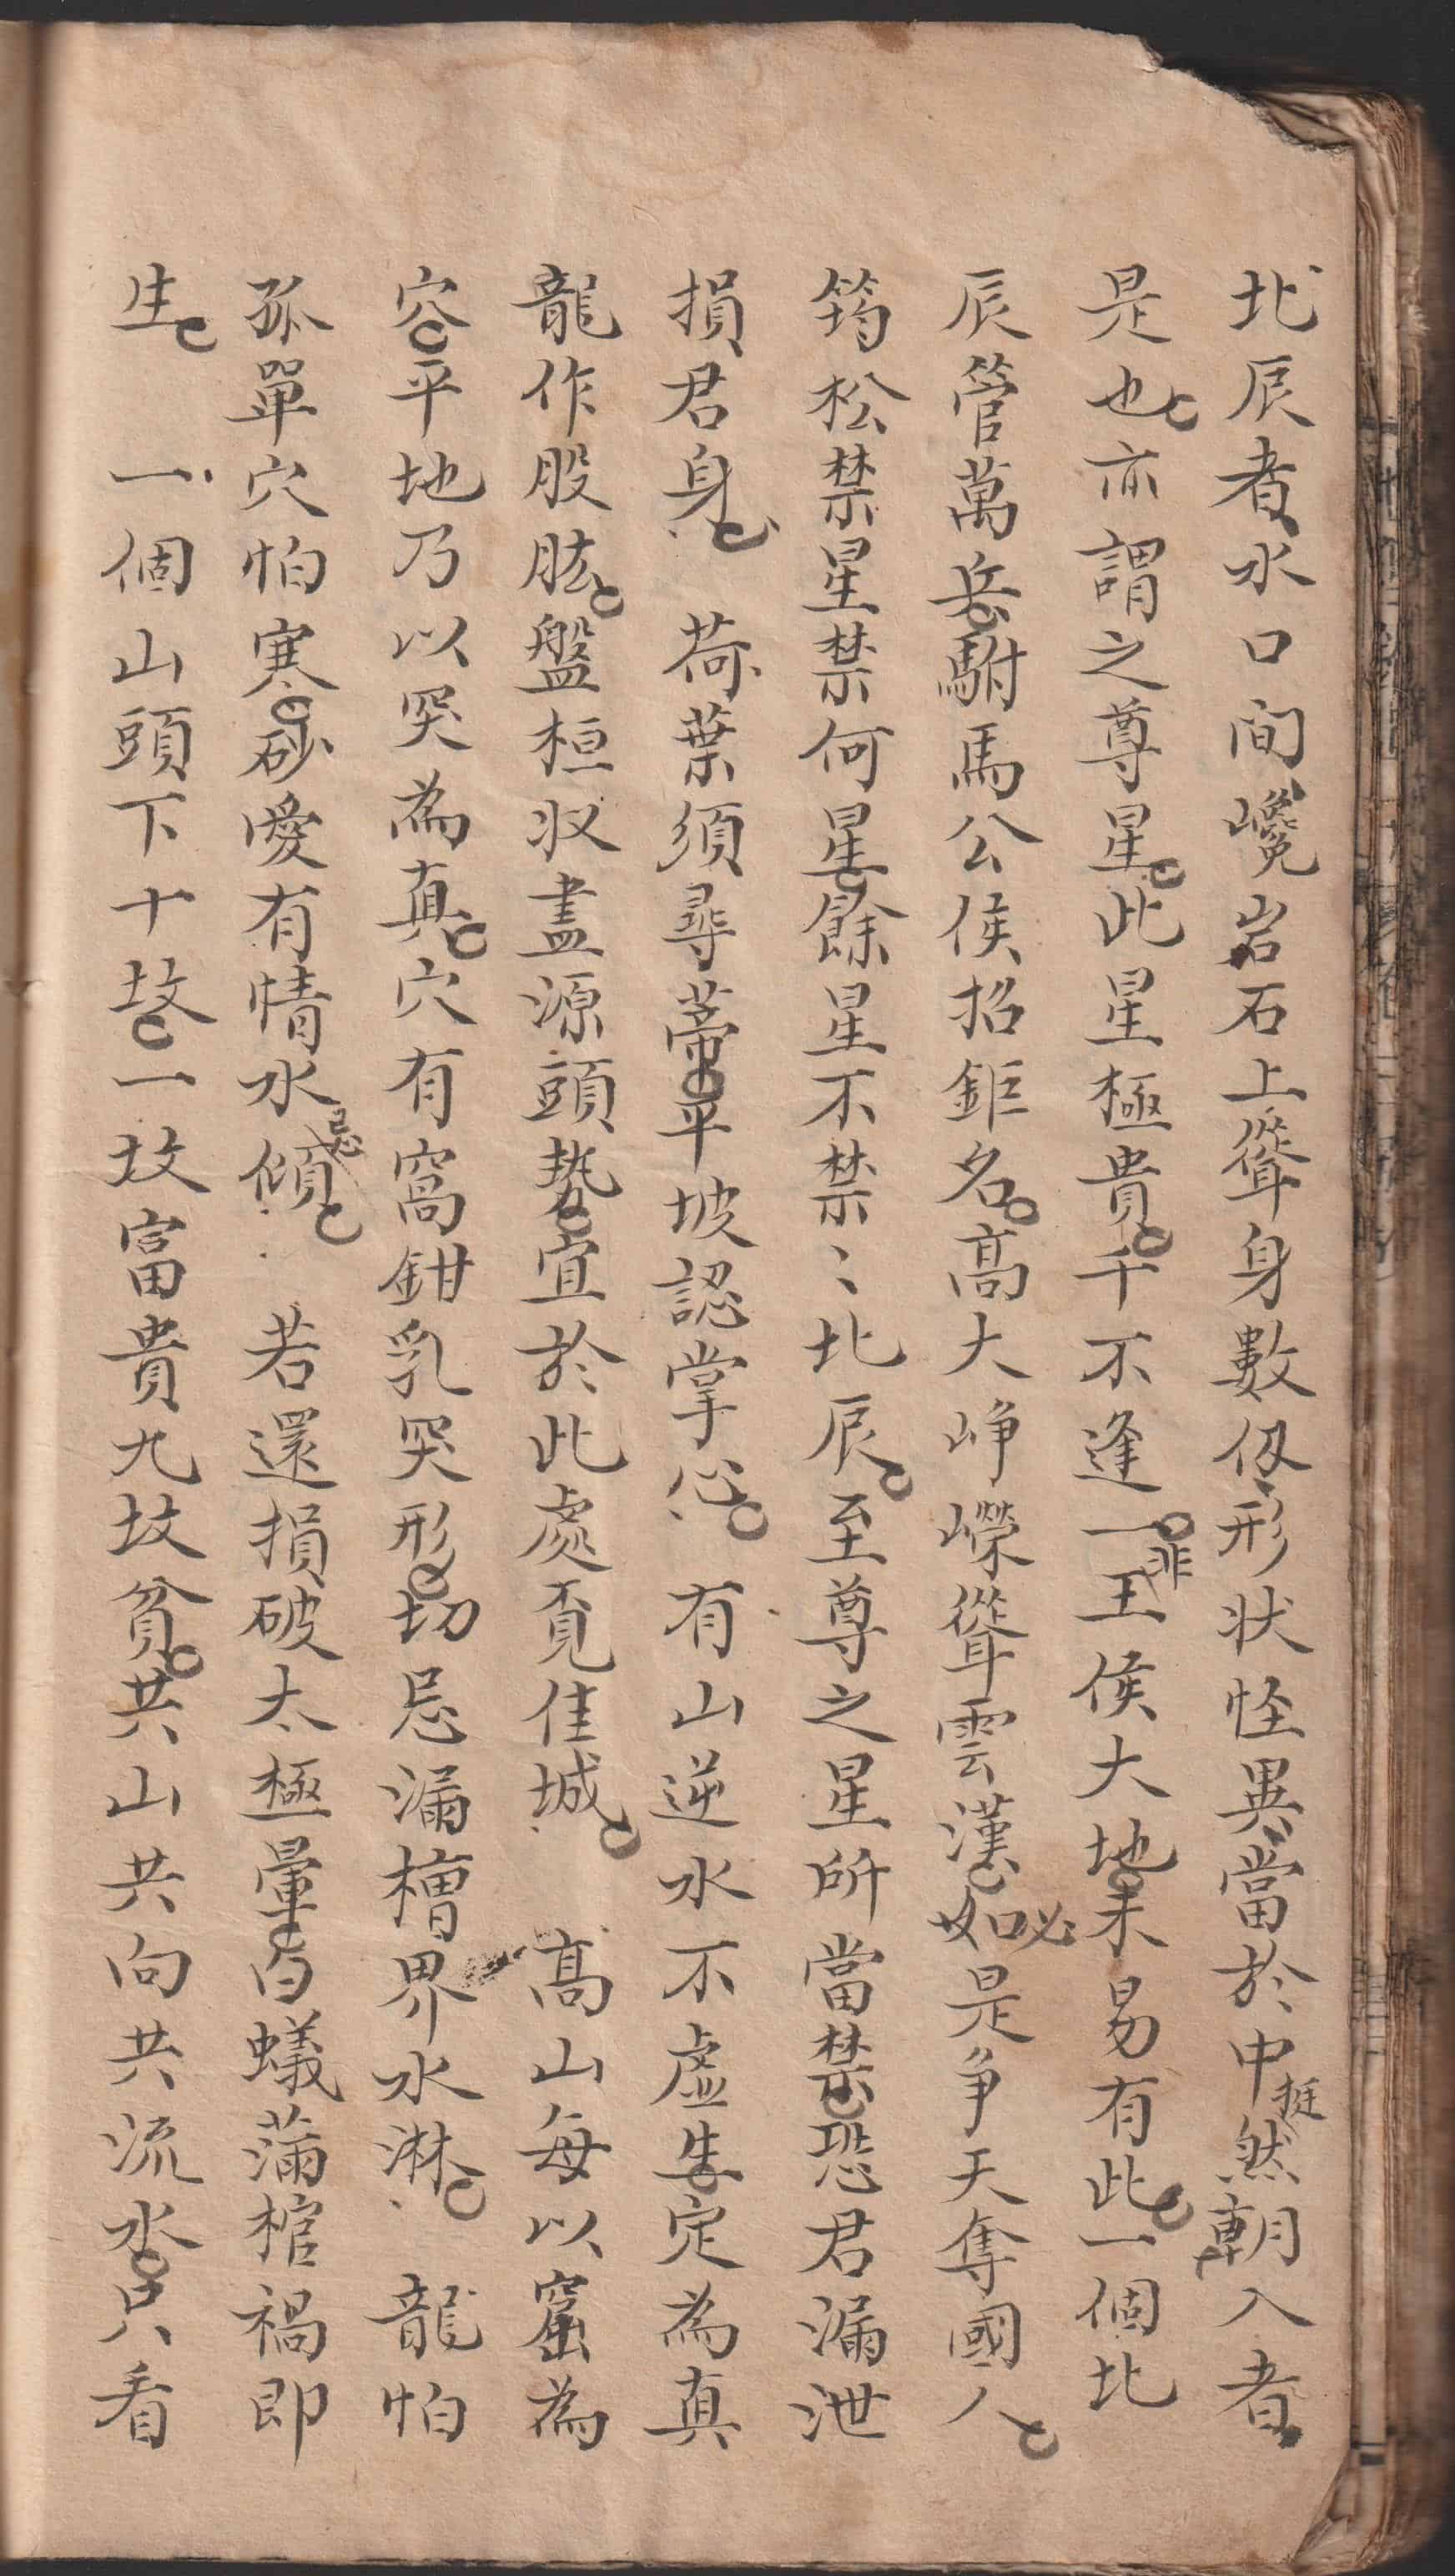 北辰者水口間巉岩石上聳身數仞形状怪異當於中挺然朝入者
是也亦謂之尊星此星極貴千不逢一非王侯大地未易有此一個北
辰管萬兵駙馬公侯招鉅名高大崢嶸聳雲漢如必是争天奪國人
筠松禁星禁何星餘星不禁〻北辰至尊之星所當禁恐君漏泄
損君身 荷葉須尋蒂平坡認掌心 有山逆水不虛生定為真
龍作股肱盤桓収盡源頭勢宜於此處覔佳城 高山每以窟為
容平地乃以突為真穴有窩鉗乳突形切忌漏槽界水淋 龍怕
孤單穴怕寒砂愛有情水忌傾 若還損破太極暈白蟻蒲棺禍即
生 一個山頭下十坟一坟富貴九坟貧共山共向共流水只看